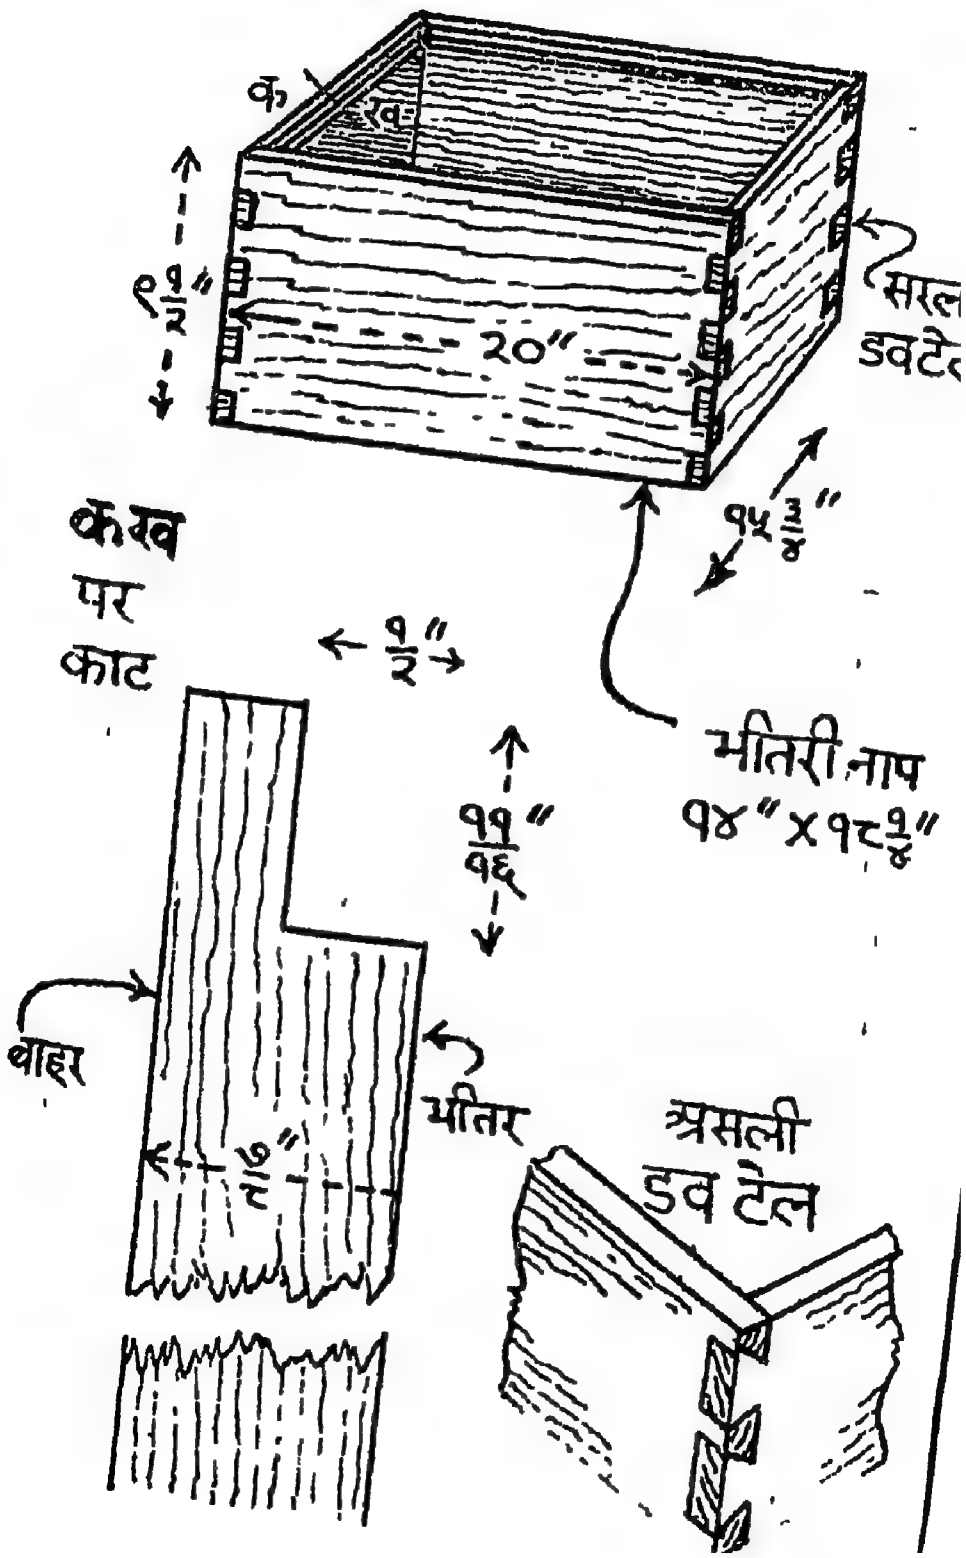 क
ख
९ १/२"
२०"
सरल
डवटेल
१५ ३/४"
क ख
पर
काट
१/२"
भीतरी नाप
१४" X १८ १/४"
११/१६"
बाहर
भीतर
७/८"
असली
डव टेल